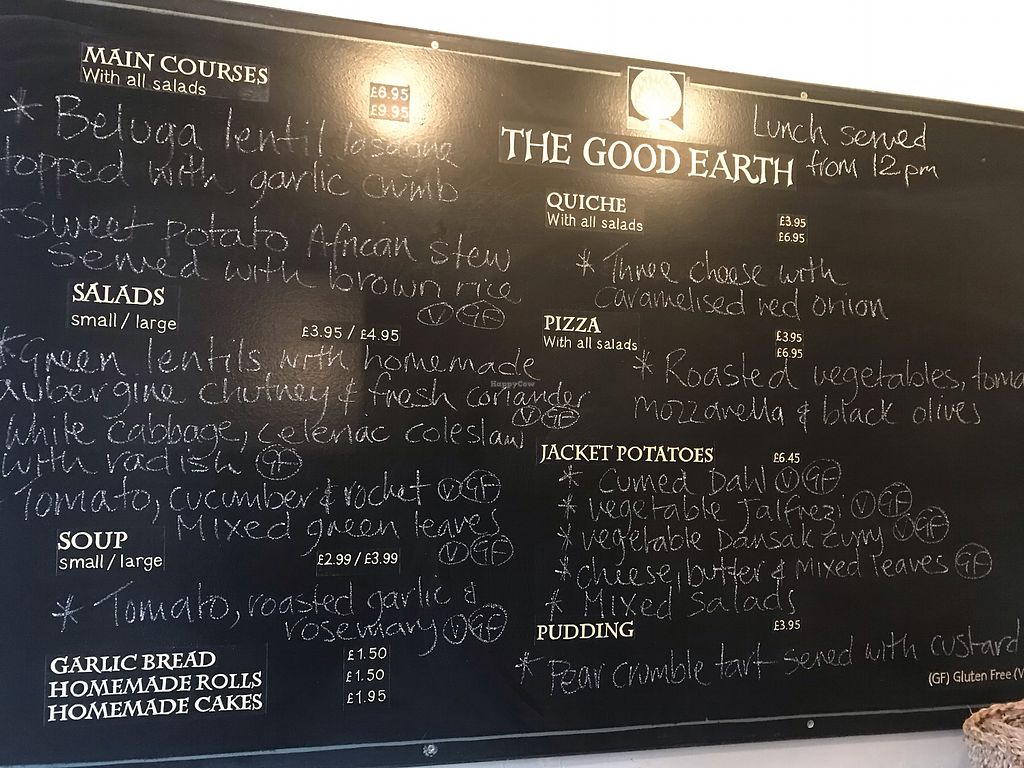 MAIN COURSES
With all salads
£6.95
£9.95
* Beluga lentil lasagne
topped with garlic crumb
Sweet potato African stew
served with brown rice
V GF
SALADS
small / large
£3.95 / £4.95
*Green lentils with homemade
aubergine chutney & fresh coriander
V GF
White cabbage, celeriac coleslaw
with radish GF
Tomato, cucumber & rocket V GF
Mixed green leaves
V GF
SOUP
small / large
£2.99 / £3.99
* Tomato, roasted garlic &
rosemary V GF
GARLIC BREAD £1.50
HOMEMADE ROLLS £1.50
HOMEMADE CAKES £1.95
THE GOOD EARTH
Lunch served
from 12pm
QUICHE
With all salads
£3.95
£6.95
* Three cheese with
caramelised red onion
PIZZA
With all salads
£3.95
£6.95
* Roasted vegetables, toma
mozzarella & black olives
JACKET POTATOES £6.45
* Curried Dahl V GF
* vegetable Jalfrezi V GF
* vegetable Dansak curry V GF
* cheese, butter & Mixed leaves GF
* Mixed Salads
PUDDING £3.95
* Pear crumble tart served with custard
(GF) Gluten Free (V
HappyCow